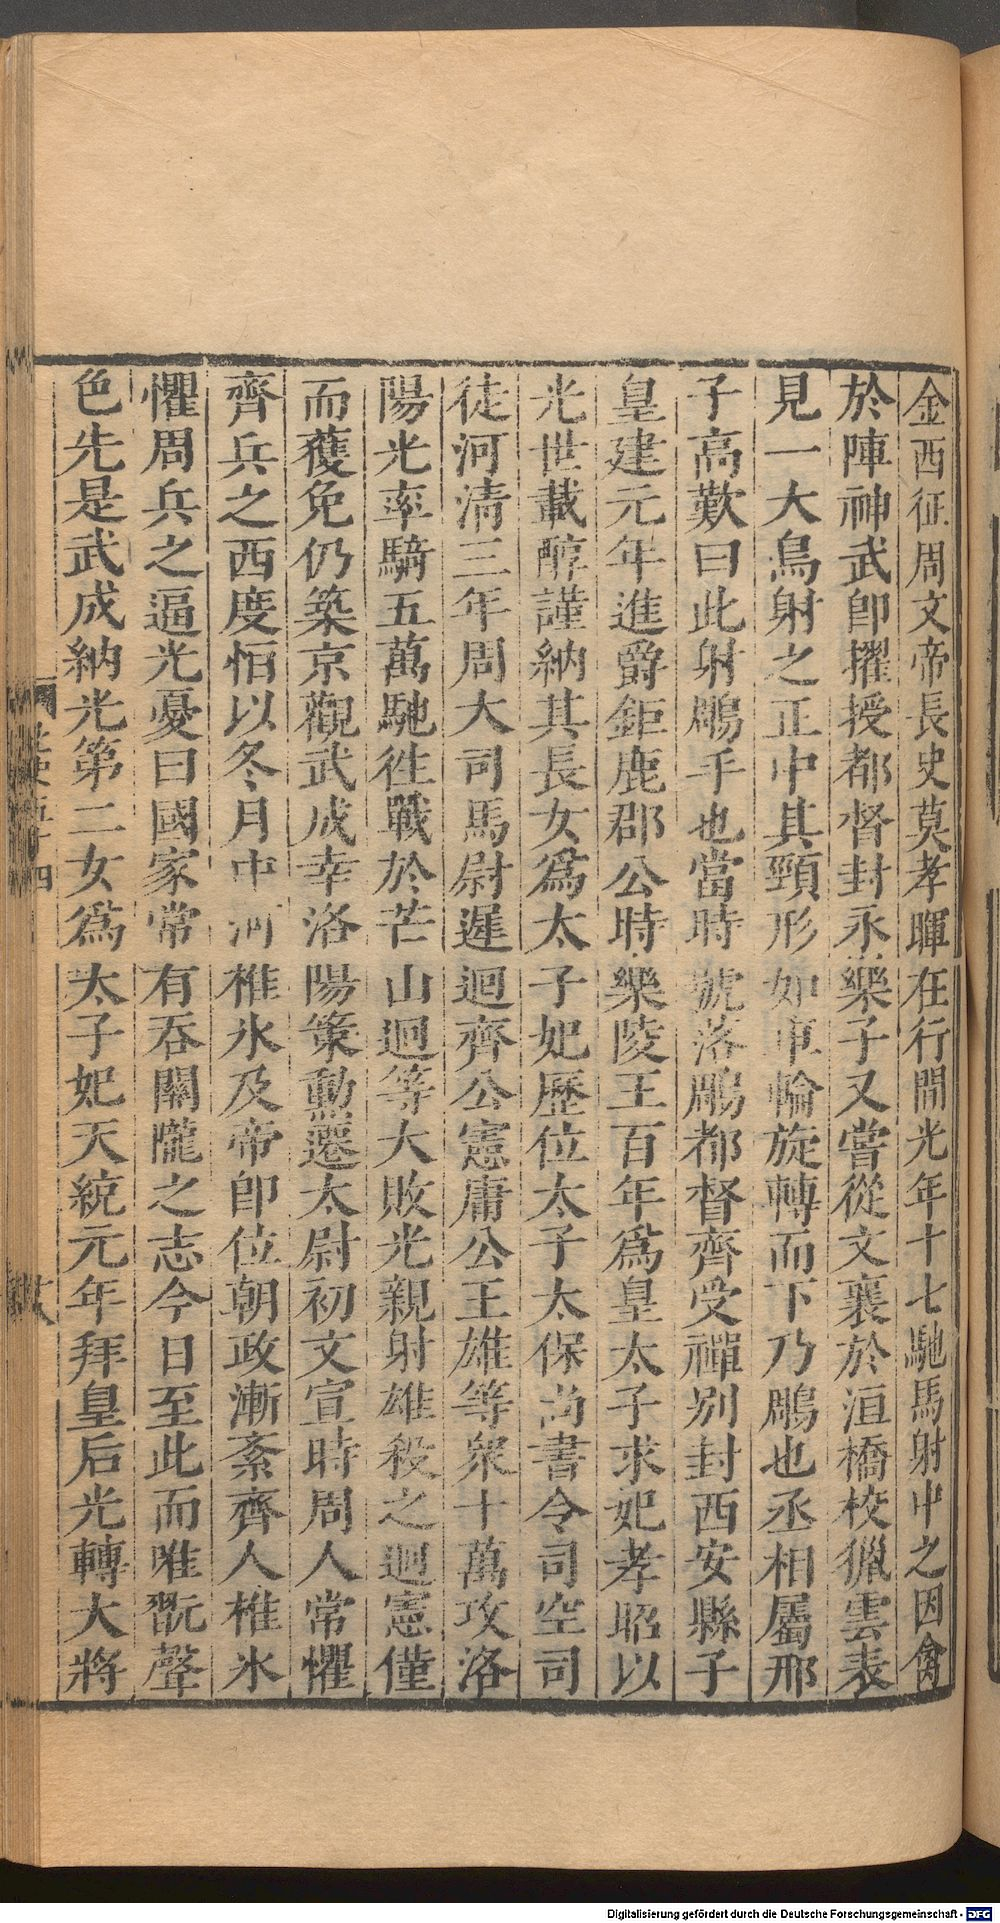 金西征周文帝長史莫孝暉在行間光年十七馳馬射中之因禽
於陣神武卽擢授都督封永樂子又嘗從文襄於洹橋校獵雲表
見一大鳥射之正中其頸形如車輪旋轉而下乃鵰也丞相屬邢
子高歎曰此射鵰手也當時號落鵰都督齊受禪别封西安縣子
皇建元年進爵鉅鹿郡公時樂陵王百年爲皇太子求妃孝昭以
光世載醇謹納其長女爲太子妃歷位太子太保尚書令司空司
徒河清三年周大司馬尉遲迴齊公憲庸公王雄等衆十萬攻洛
陽光率騎五萬馳徃戰於芒山迴等大敗光親射雄殺之迴憲僅
而獲免仍築京觀武成幸洛陽策勳遷太尉初文宣時周人常懼
齊兵之西度恒以冬月中河椎氷及帝卽位朝政漸紊齊人椎氷
懼周兵之逼光憂曰國家常有吞關隴之志今日至此而唯翫聲
色先是武成納光第二女爲太子妃天統元年拜皇后光轉大將
北史五十四
Digitalisierung gefördert durch die Deutsche Forschungsgemeinschaft - DFG